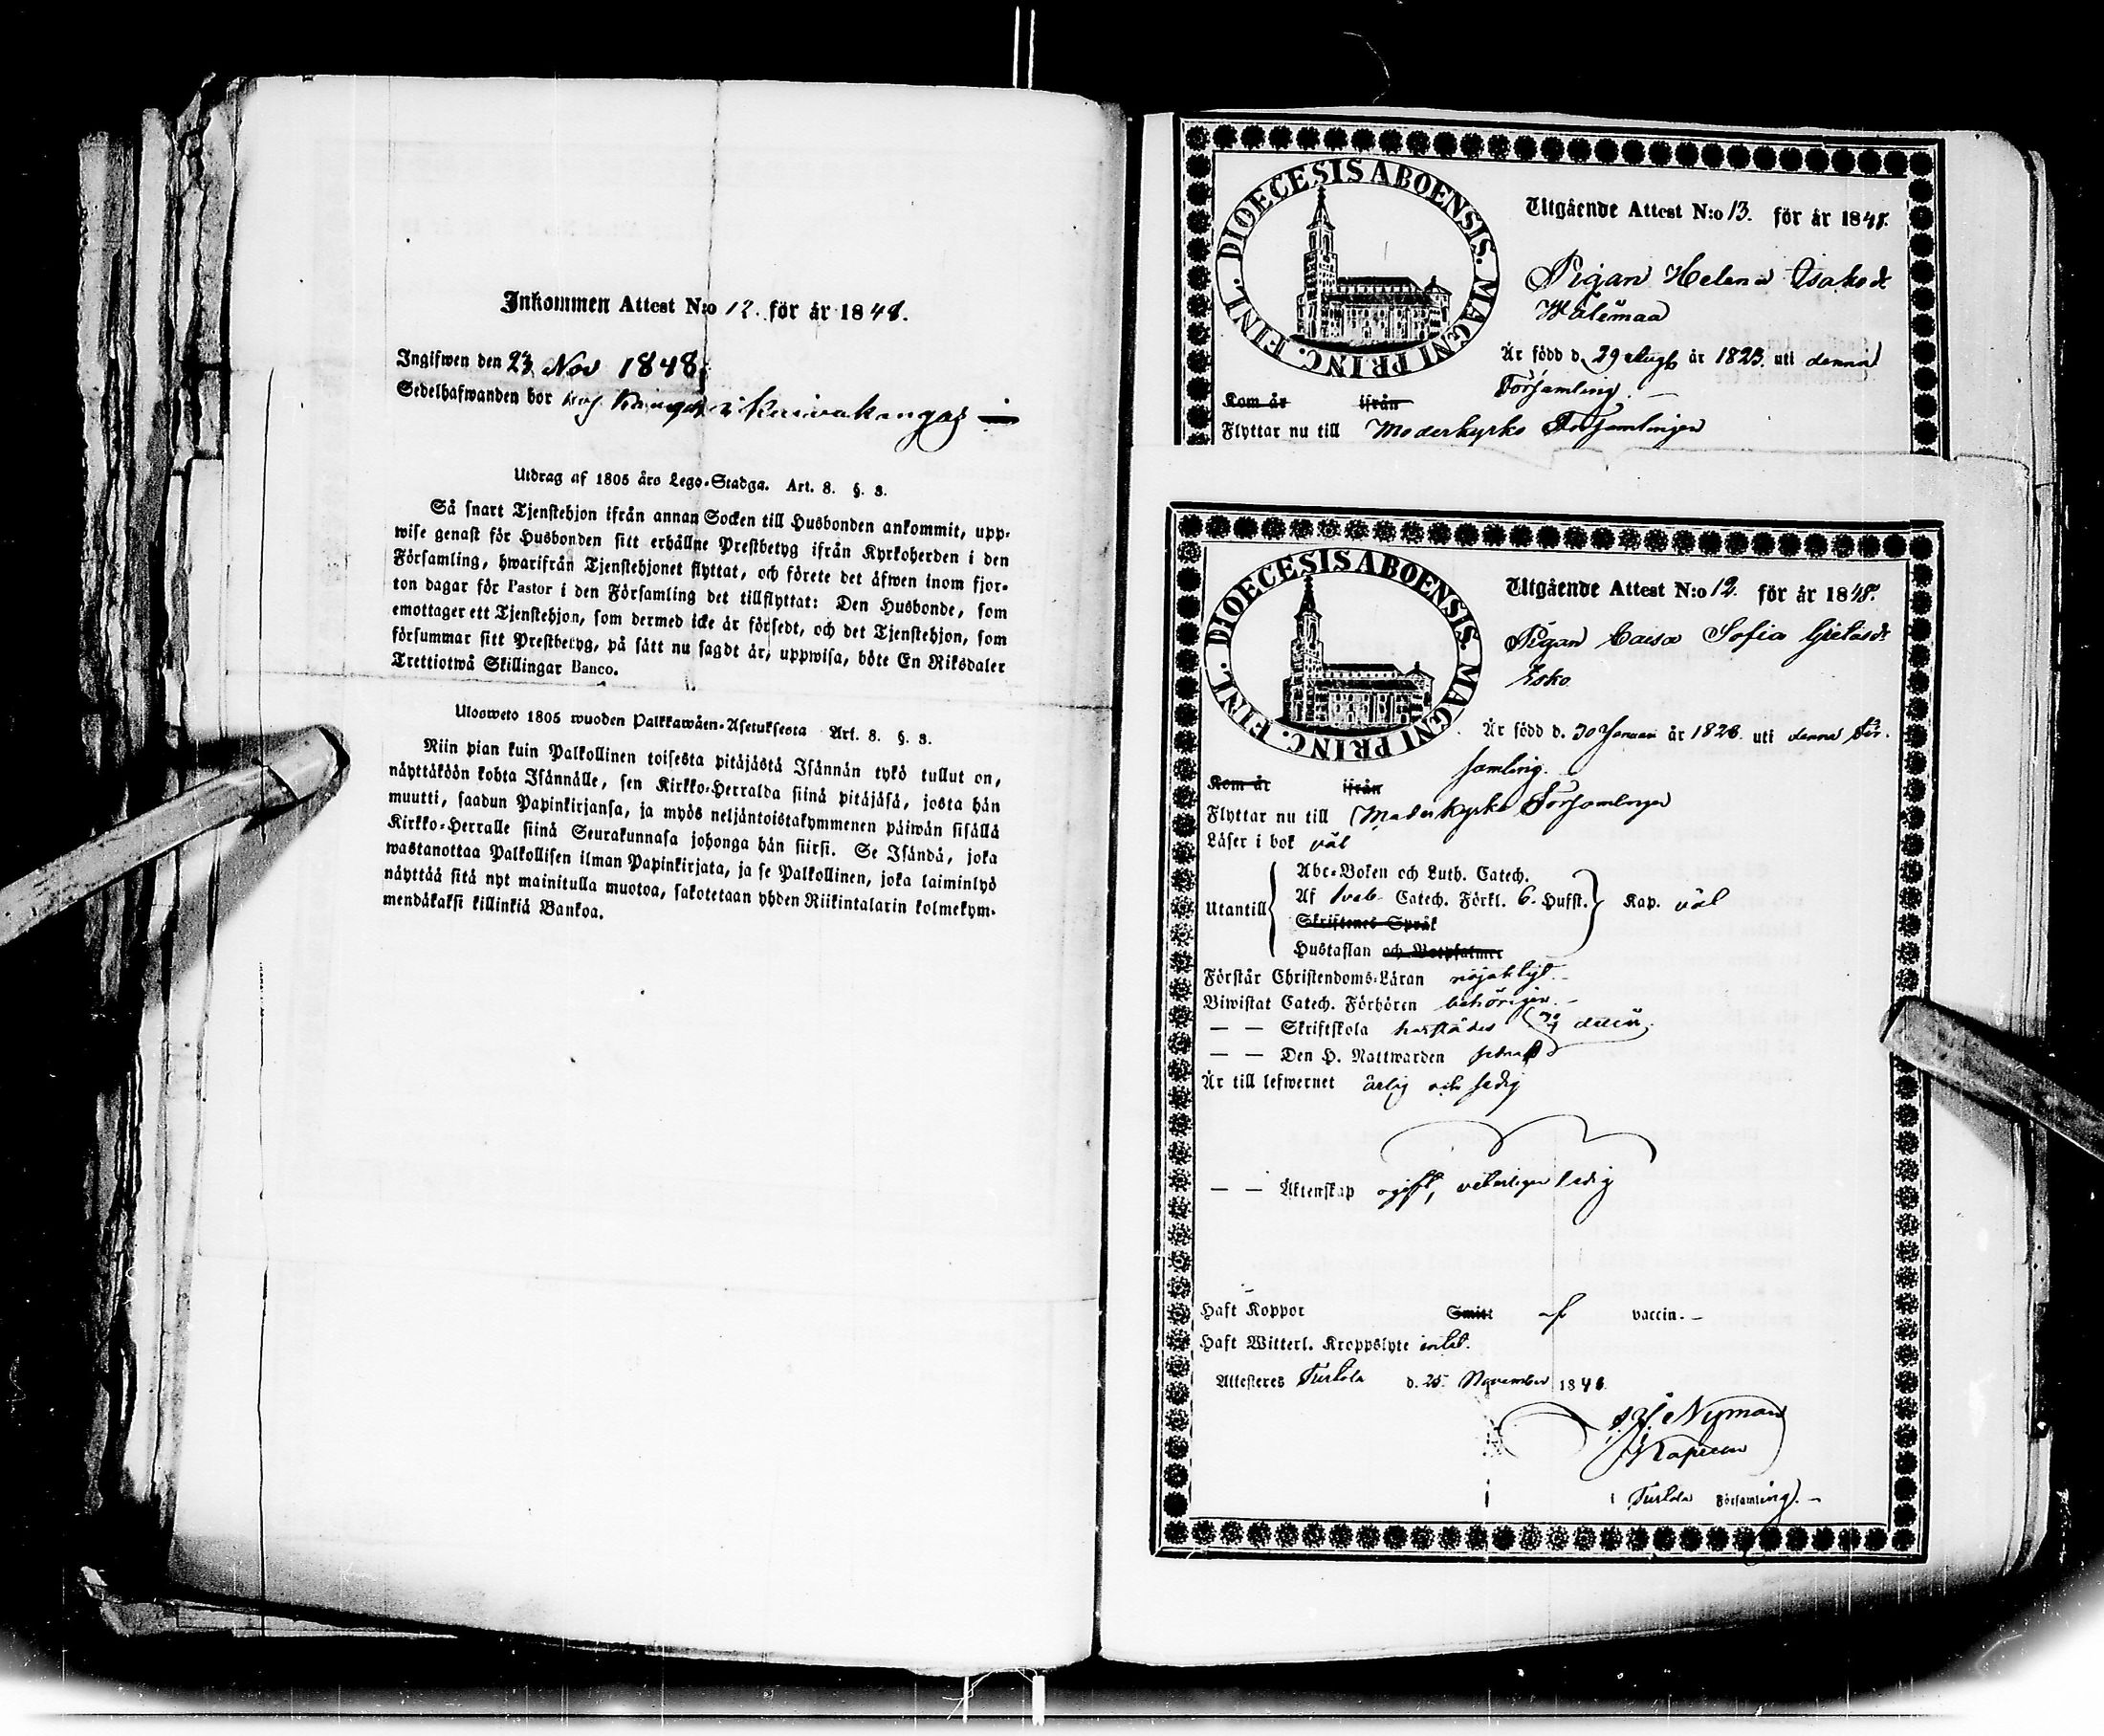 Inkommen Attest N:o 12. för år 1848.
Ingifwen den 23 Nov 1848.
Sedelhafwanden bor hos Kangas i Kuivakangas
Utdrag af 1805 års Lego-Stadga. Art. 8. §. 3.
Så snart Tjenstehjon ifrån annan Socken till Husbonden ankommit, upp-
wise genast för Husbonden sitt erhållne Prestbetyg ifrån Kyrkoherden i den
Församling, hwarifrån Tjenstehjonet flyttat, och förete det äfwen inom fjor-
ton dagar för Pastor i den Församling det tillflyttat: Den Husbonde, som
emottager ett Tjenstehjon, som dermed icke är försedt, och det Tjenstehjon, som
försummar sitt Prestbetyg, på sätt nu sagdt är, uppwisa, böte En Riksdaler
Trettiotwå Skillingar Banco.
Ulosweto 1805 wuoden Palkkawäen-Asetuksesta Art. 8. §. 3.
Niin pian kuin Palkollinen toisesta pitäjästä Isännän tykö tullut on,
näyttäköön kohta Isännälle, sen Kirkko-Herralda siinä pitäjäsä, josta hän
muutti, saadun Papinkirjansa, ja myös neljäntoistakymmenen päiwän sisällä
Kirkko-Herralle siinä Seurakunnasa johonga hän siirsi. Se Isändä, joka
wastanottaa Palkollisen ilman Papinkirjata, ja se Palkollinen, joka laiminlyö
näyttää sitä nyt mainitulla muotoa, sakotetaan yhden Riikintalarin kolmekym-
mendäkaksi killinkiä Bankoa.
DIOECESIS ABOENSIS. MAGNI PRINC. FINL.
Utgående Attest N:o 13. för år 1848.
Pigan Helena Isaksdr
Wälimaa
Är född d. 29 Augt år 1823. uti denna
Församling.
Kom år ifrån
Flyttar nu till Moderkyrko Församlingen
DIOECESIS ABOENSIS. MAGNI PRINC. FINL.
Utgående Attest N:o 12. för år 1848.
Pigan Caisa Sofia
Esko
Är född d. 30 Januari år 1826. uti denna För-
samling.
Kom år ifrån
Flyttar nu till Moderkyrko Församlingen
Läser i bok väl
Utantill
Abc-Boken och Luth. Catech.
Af Catech. Förkl. 6. Hufst. Kap. väl
Skriftenes Språk
Hustaflan och Botpsalmer
Förstår Christendoms-Läran nöjaktigt.
Biwistat Catech. Förhören behörigen.
— — Skriftskola
— — Den H. Nattwarden
Är till lefwernet ärlig och sedig
— — Äktenskap ogift, veterligen ledig
Haft Koppor Smitt af vaccin.
Haft Witterl. Kroppslyte intet.
Attesteres Turtola d. 25 November 1848.
Nyman
Kapellan
i Turtola Församling.